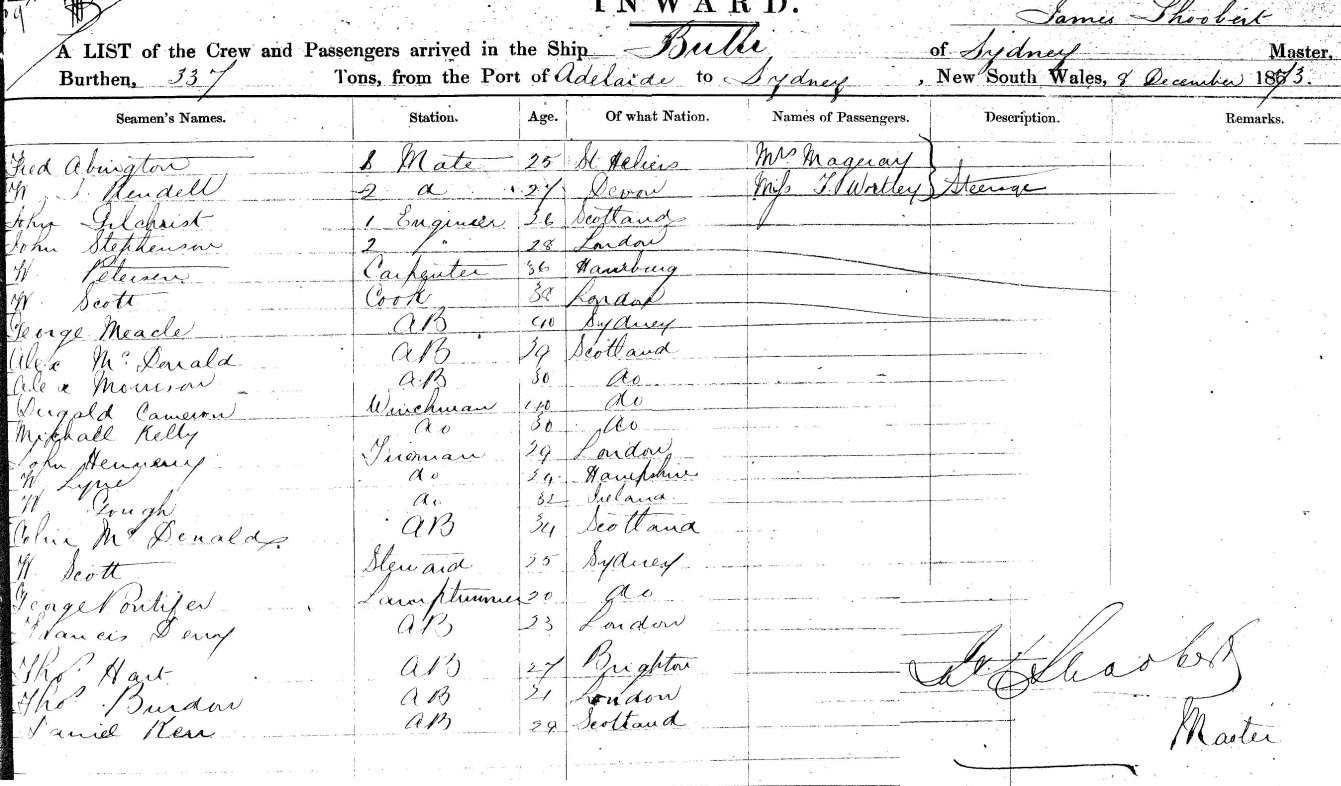 INWARD.
James Shoobert
A LIST of the Crew and Passengers arrived in the Ship of Sydney Master,
Burthen, 337 Tons, from the Port of Adelaide to Sydney, New South Wales, 8 December 1873.
Seamen's Names. Station. Age. Of what Nation. Names of Passengers. Description. Remarks.
Fred Abington 1 Mate 25 St Heliers Mrs
W Rendell 2 do 27 Devon Miss Wortley Steerage
John Gilchrist 1 Engineer 36 Scotland
John Stephenson 2 " 28 London
W Petersen Carpenter 36 Hamburg
W Scott Cook 38 London
George Meacle AB 40 Sydney
Alex Mc Donald AB 39 Scotland
Alex Morrison AB 30 do
Dugald Cameron Winchman 40 do
Michall Kelly do 30 do
John Hennessy Fireman 29 London
W Lyne do 24 Hampshire
W Gough do 32 Ireland
Mc Donald AB 34 Scotland
W Scott Steward 25 Sydney
George Pontifex Lamptrimmer 20 do
Francis Derry AB 23 London
Thos Hart AB 27 Brighton
Thos Burdon AB 21 London
Daniel Kerr AB 29 Scotland
Shoobert
Master